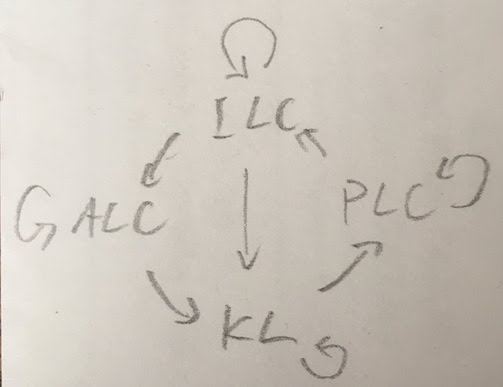 ILC
ALC
PLC
KL